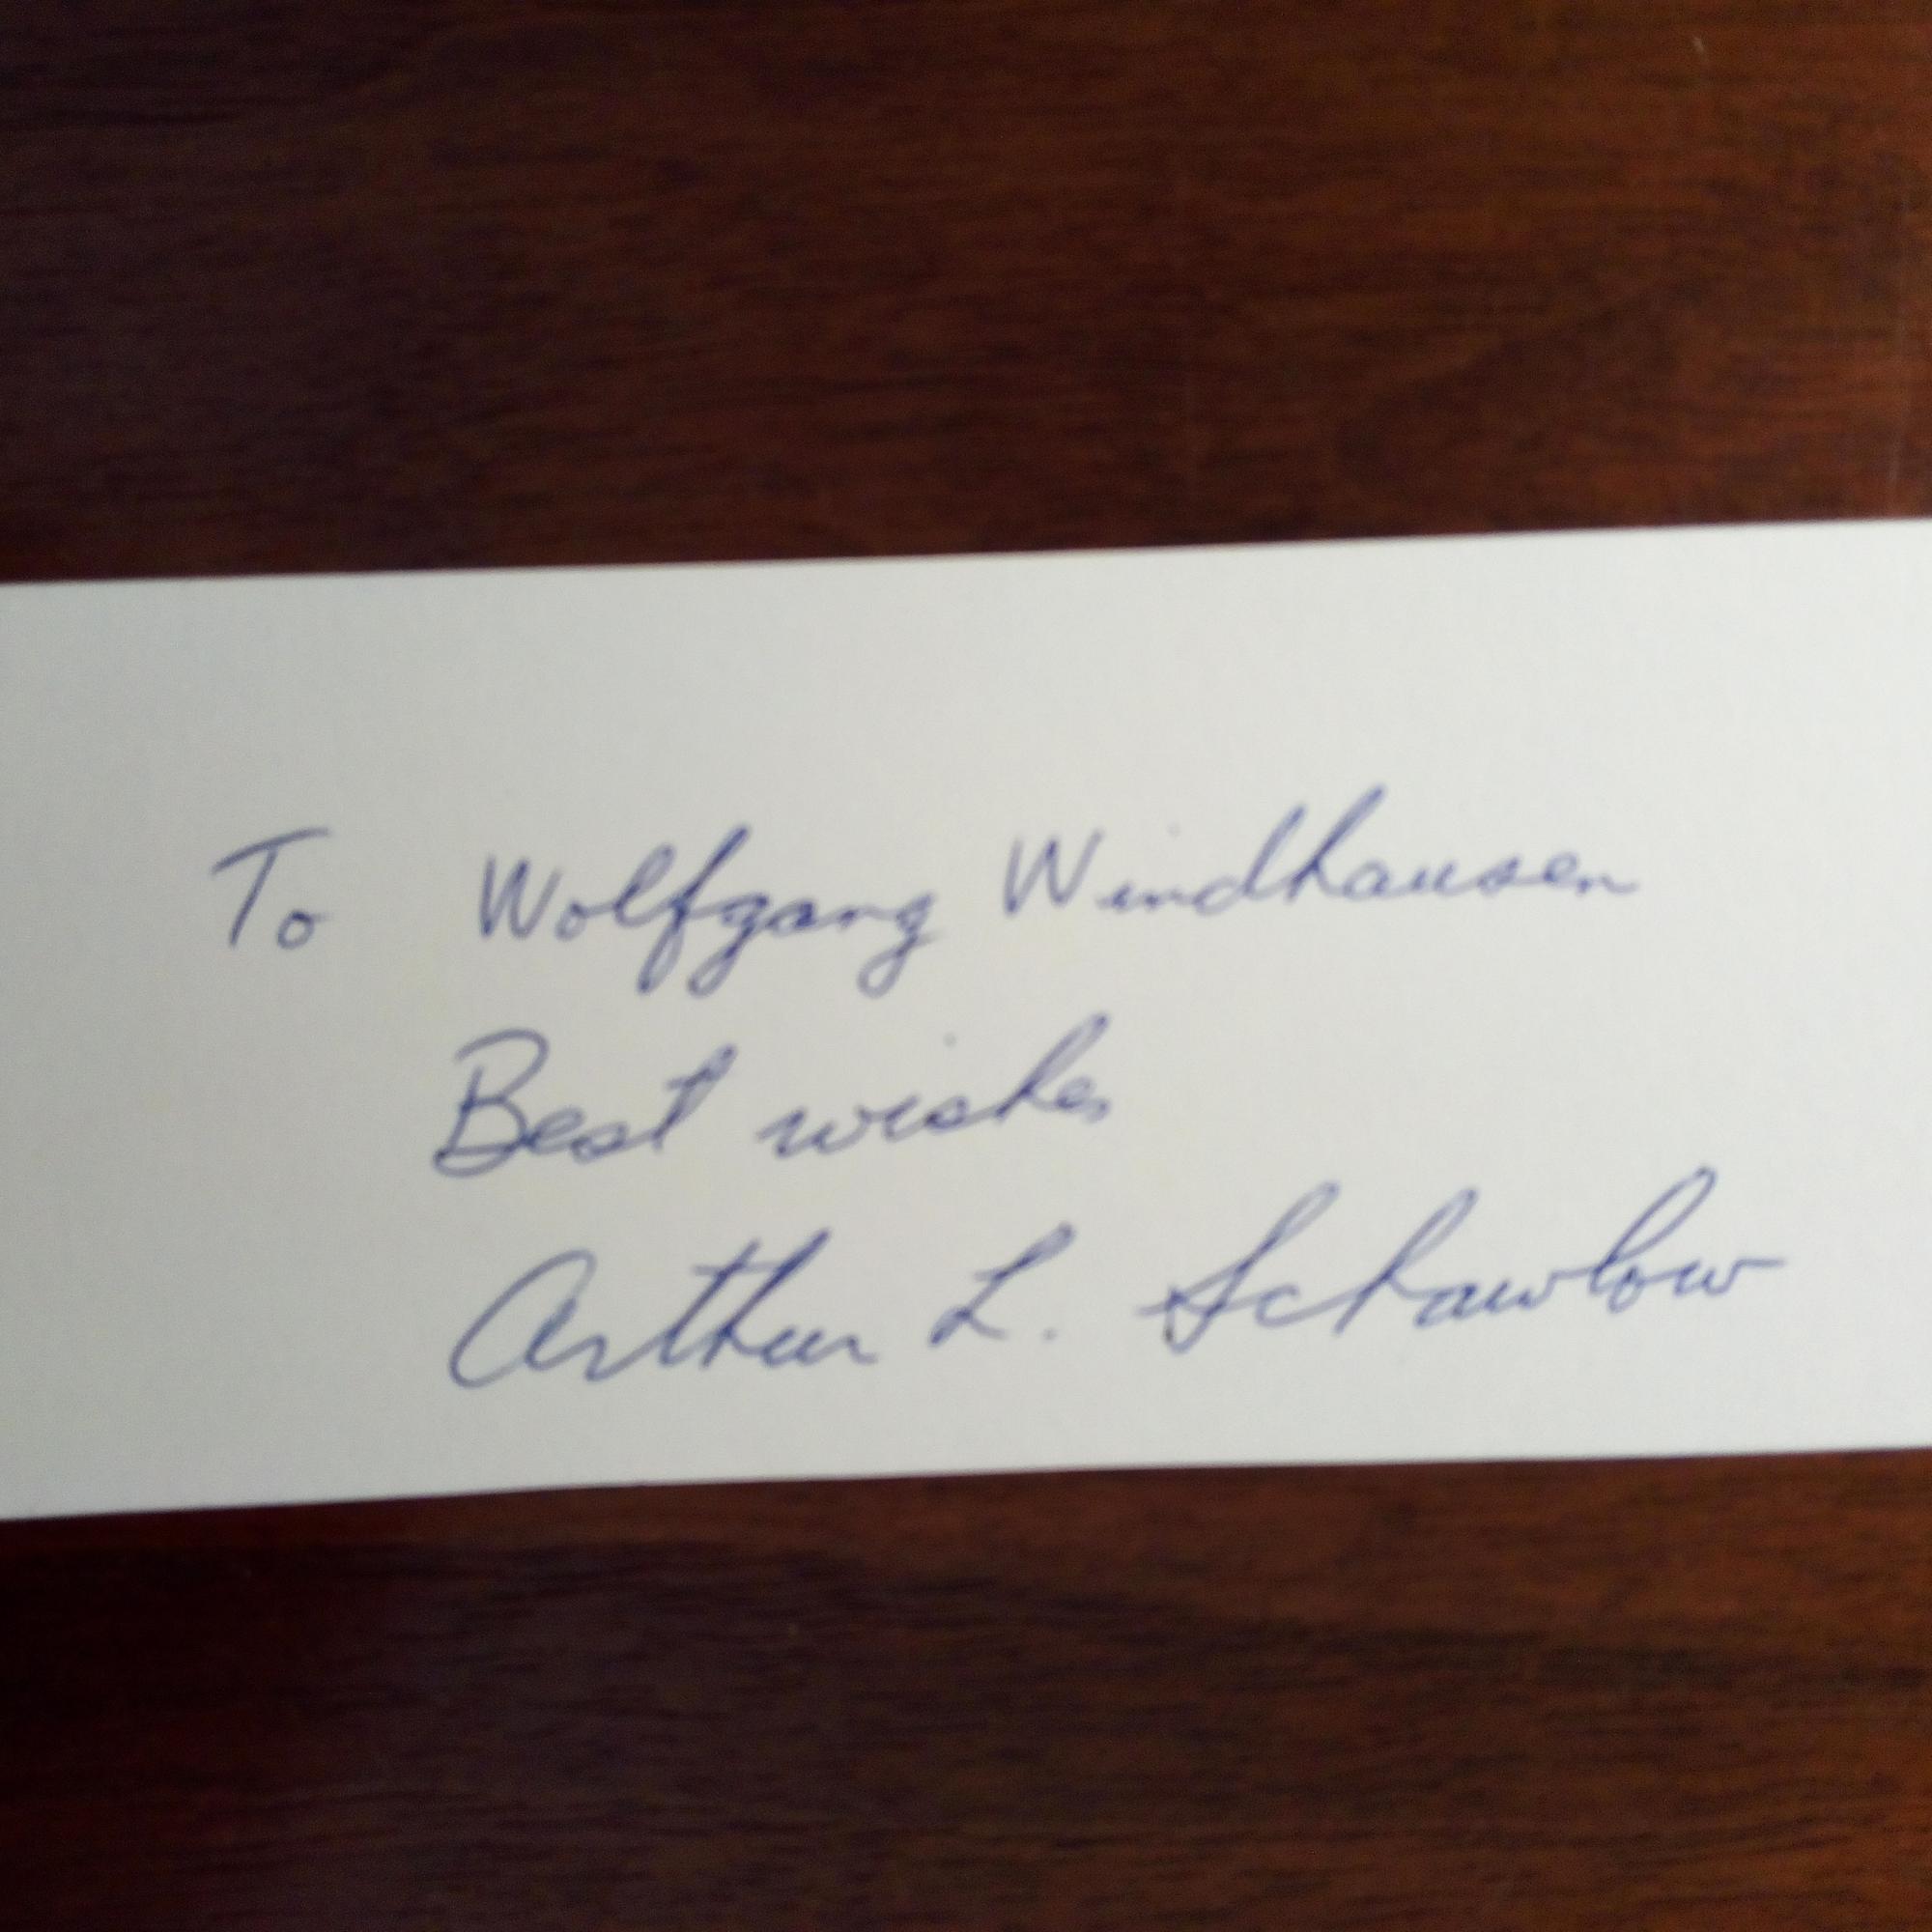 To Wolfgang Windhausen
Best wishes
Arthur L. Schawlow